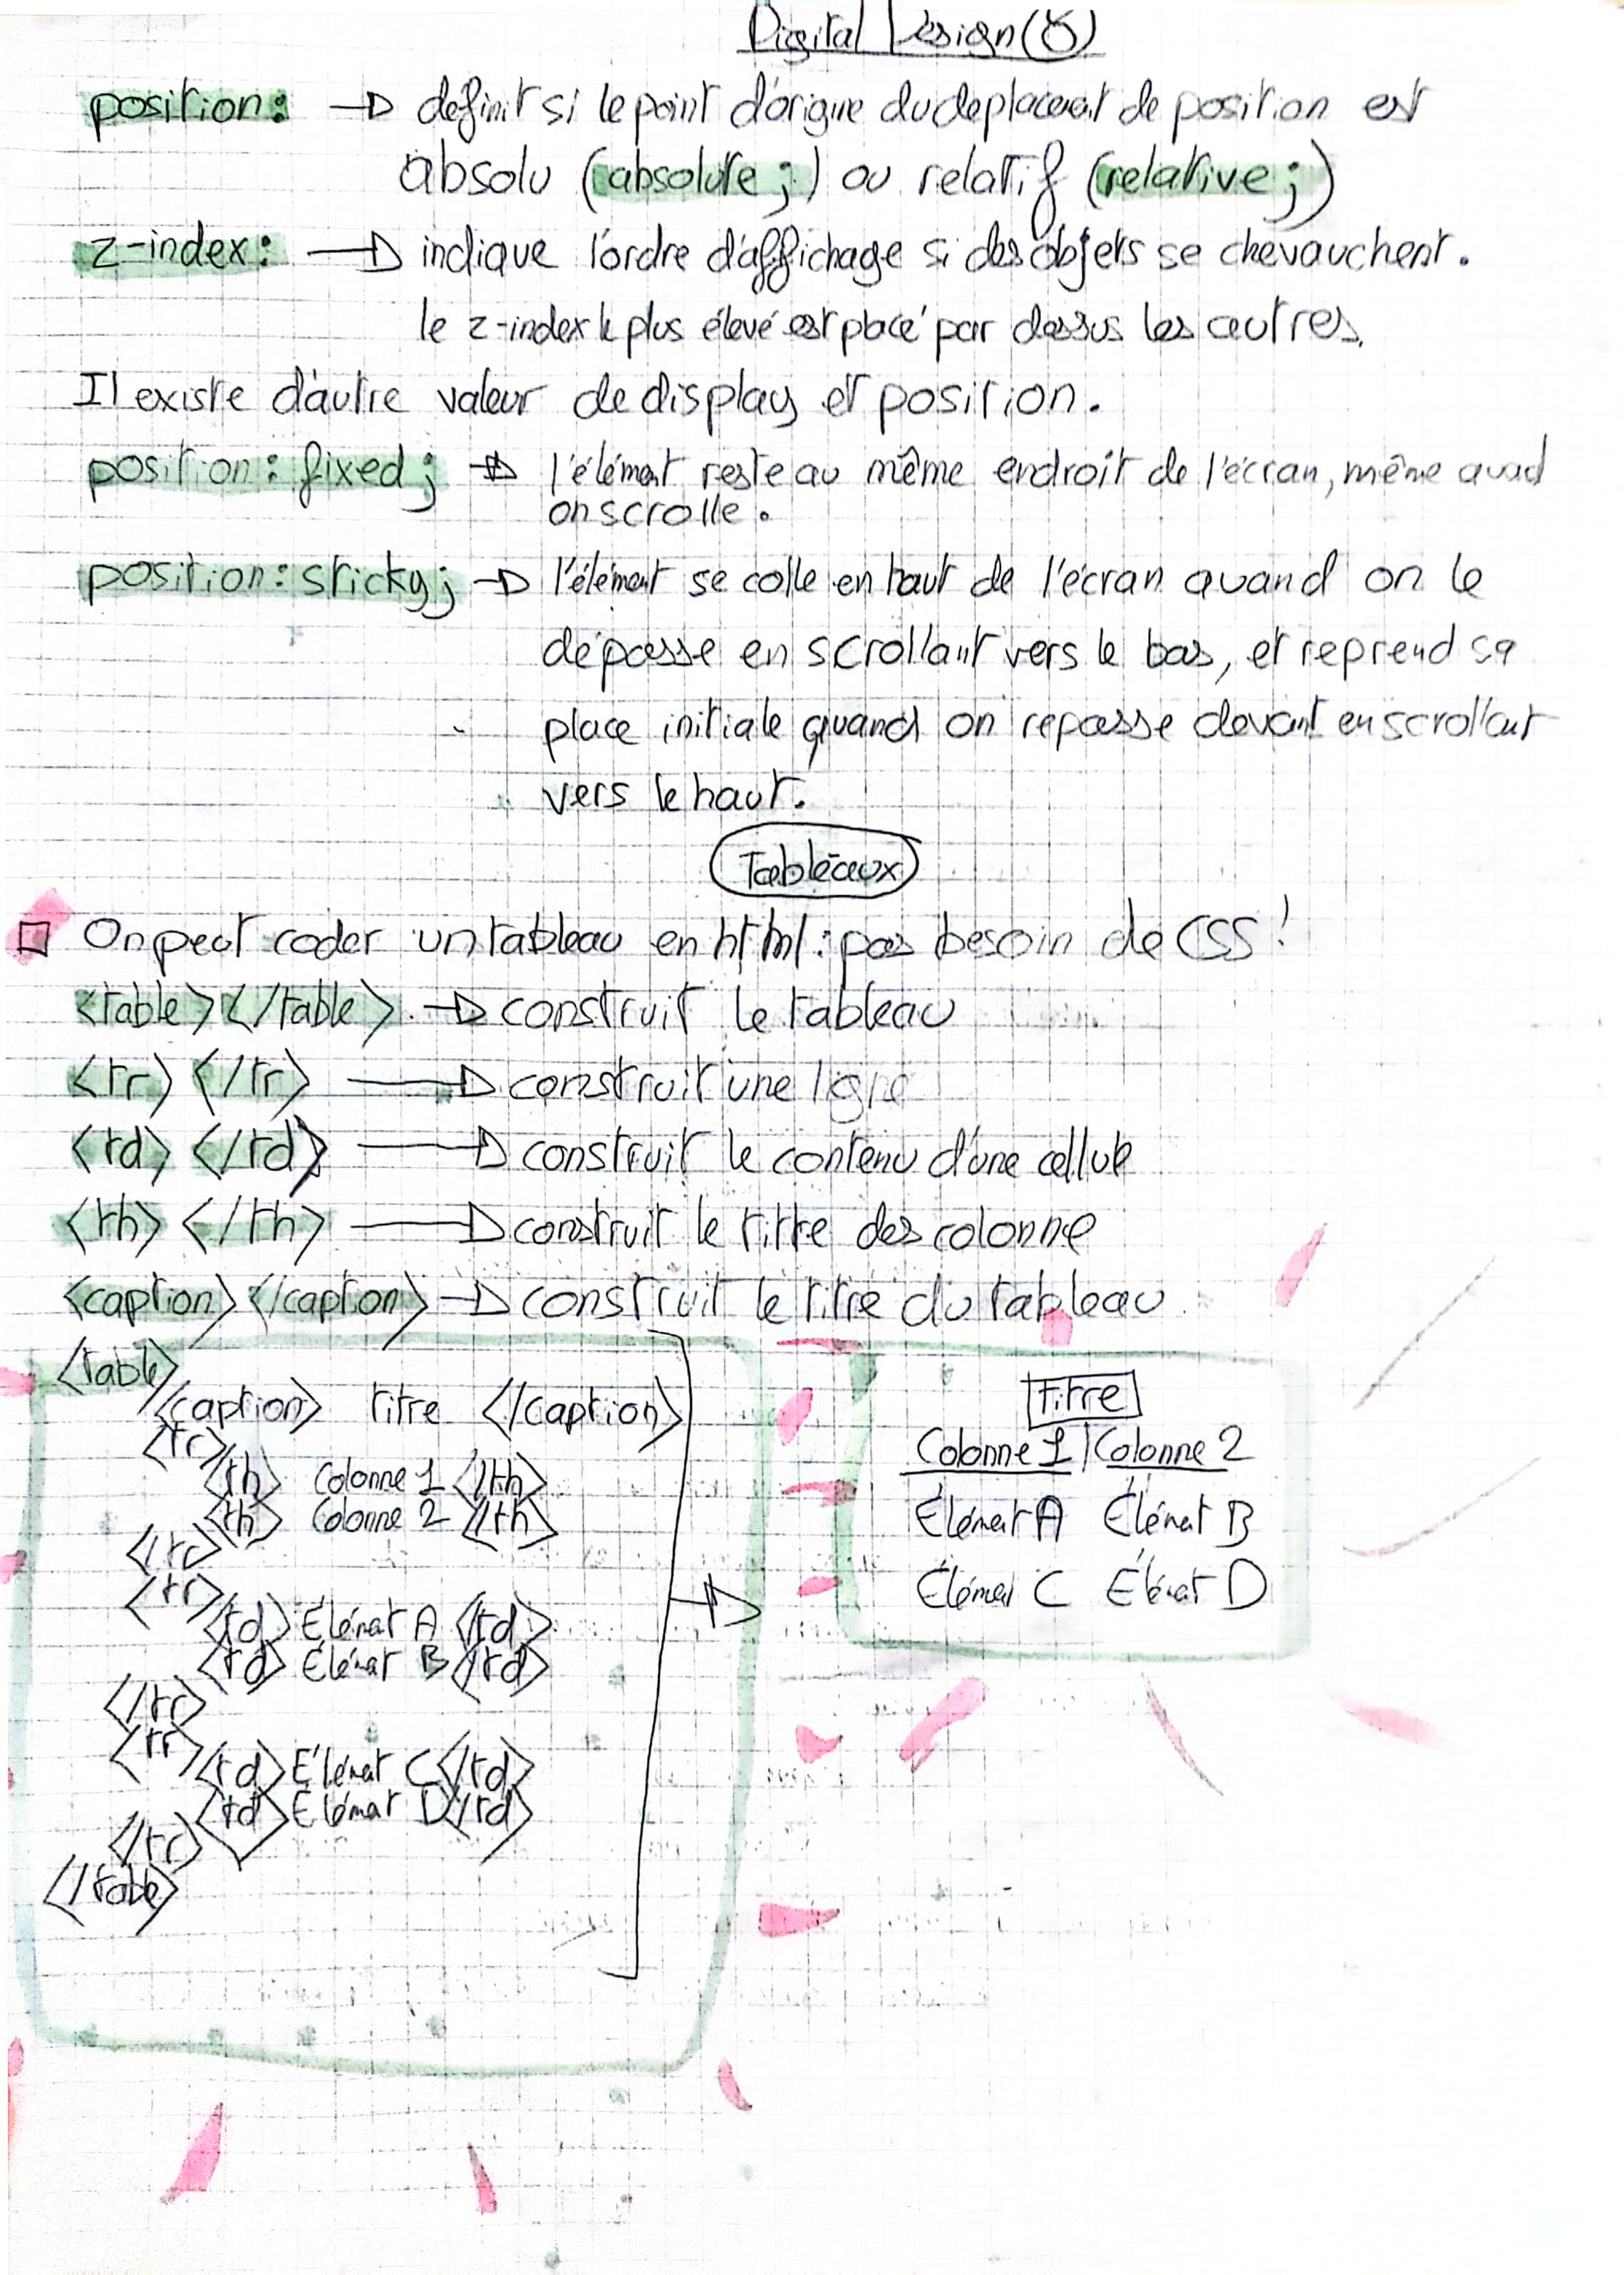 Digital Design (8)
position: → définit si le point d'origine du deplacement de position est
absolu (absolute;) ou relatif (relative;)
z-index: → indique l'ordre d'affichage si des objets se chevauchent.
le z-index le plus élevé est placé par dessus les autres.
Il existe d'autre valeur de display et position.
position: fixed; → l'élément reste au même endroit de l'écran, même quad
on scrolle.
position: sticky; → l'élément se colle en haut de l'écran quand on le
dépasse en scrollant vers le bas, et reprend sa
place initiale quand on repasse devant en scrollant
vers le haut.
Tableaux
On peut coder un tableau en html: pas besoin de CSS!
<table></table> → construit le tableau
<tr> </tr> → construit une ligne
<td> </td> → construit le contenu d'une cellule
<th> </th> → construit le titre des colonne
<caption></caption> → construit le titre du tableau
<table>
<caption> titre </caption>
<tr>
<th> Colonne 1 </th>
<th> Colonne 2 </th>
</tr>
<tr>
<td> Élément A </td>
<td> Élément B </td>
</tr>
<tr>
<td> Élément C </td>
<td> Élément D </td>
</tr>
</table>
→
Titre
Colonne 1 | Colonne 2
Élément A Élément B
Élément C Élément D